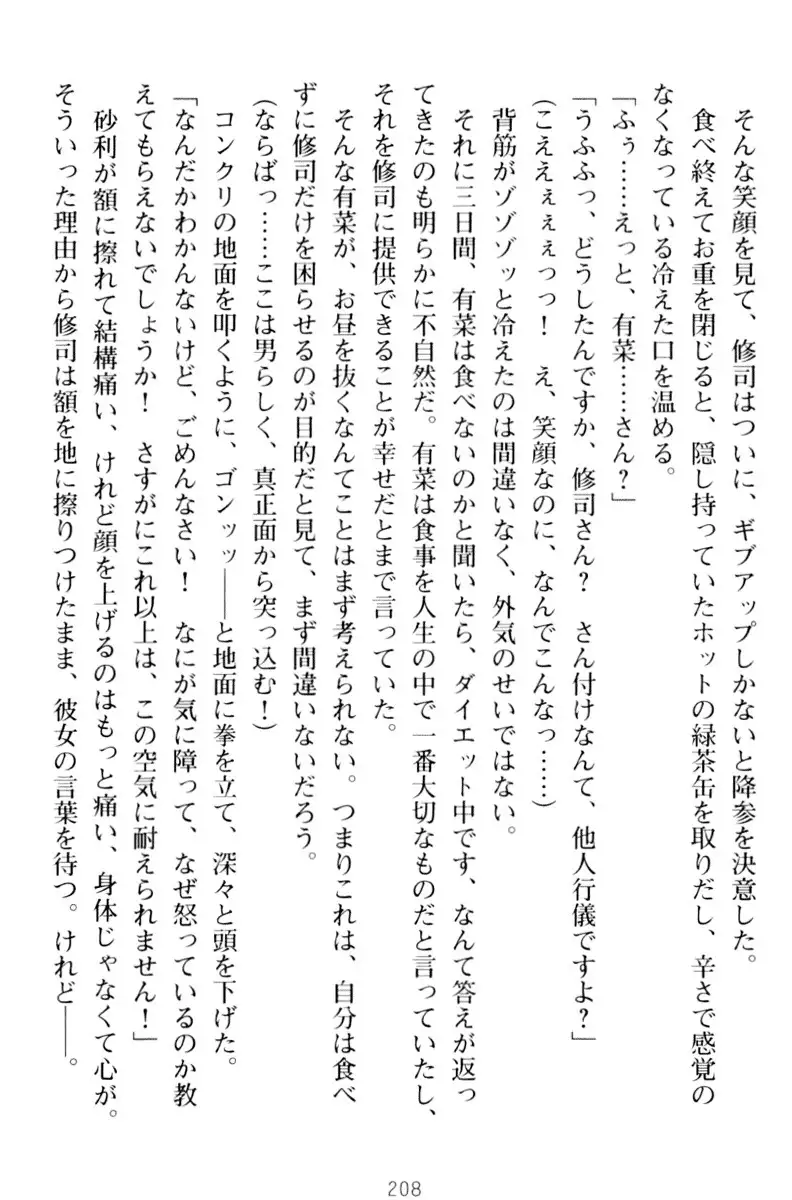 そんな笑顔を見て、修司はついに、ギブアップしかないと降参を決意した。
食べ終えてお重を閉じると、隠し持っていたホットの緑茶缶を取りだし、辛さで感覚の
なくなっている冷えた口を温める。
「ふぅ……えっと、有菜……さん？」
「うふふっ、どうしたんですか、修司さん？　さん付けなんて、他人行儀ですよ？」
(こえええぇぇぇっっ！　え、笑顔なのに、なんでこんなっ……)
背筋がゾゾゾッと冷えたのは間違いなく、外気のせいではない。
それに三日間、有菜は食べないのかと聞いたら、ダイエット中です、なんて答えが返っ
てきたのも明らかに不自然だ。有菜は食事を人生の中で一番大切なものだと言っていたし、
それを修司に提供できることが幸せだとまで言っていた。
そんな有菜が、お昼を抜くなんてことはまず考えられない。つまりこれは、自分は食べ
ずに修司だけを困らせるのが目的だと見て、まず間違いないだろう。
(ならばっ……ここは男らしく、真正面から突っ込む！)
コンクリの地面を叩くように、ゴンッッ――と地面に拳を立て、深々と頭を下げた。
「なんだかわかんないけど、ごめんなさい！　なにが気に障って、なぜ怒っているのか教
えてもらえないでしょうか！　さすがにこれ以上は、この空気に耐えられません！」
砂利が額に擦れて結構痛い、けれど顔を上げるのはもっと痛い、身体じゃなくて心が。
そういった理由から修司は額を地に擦りつけたまま、彼女の言葉を待つ。けれど――。
208